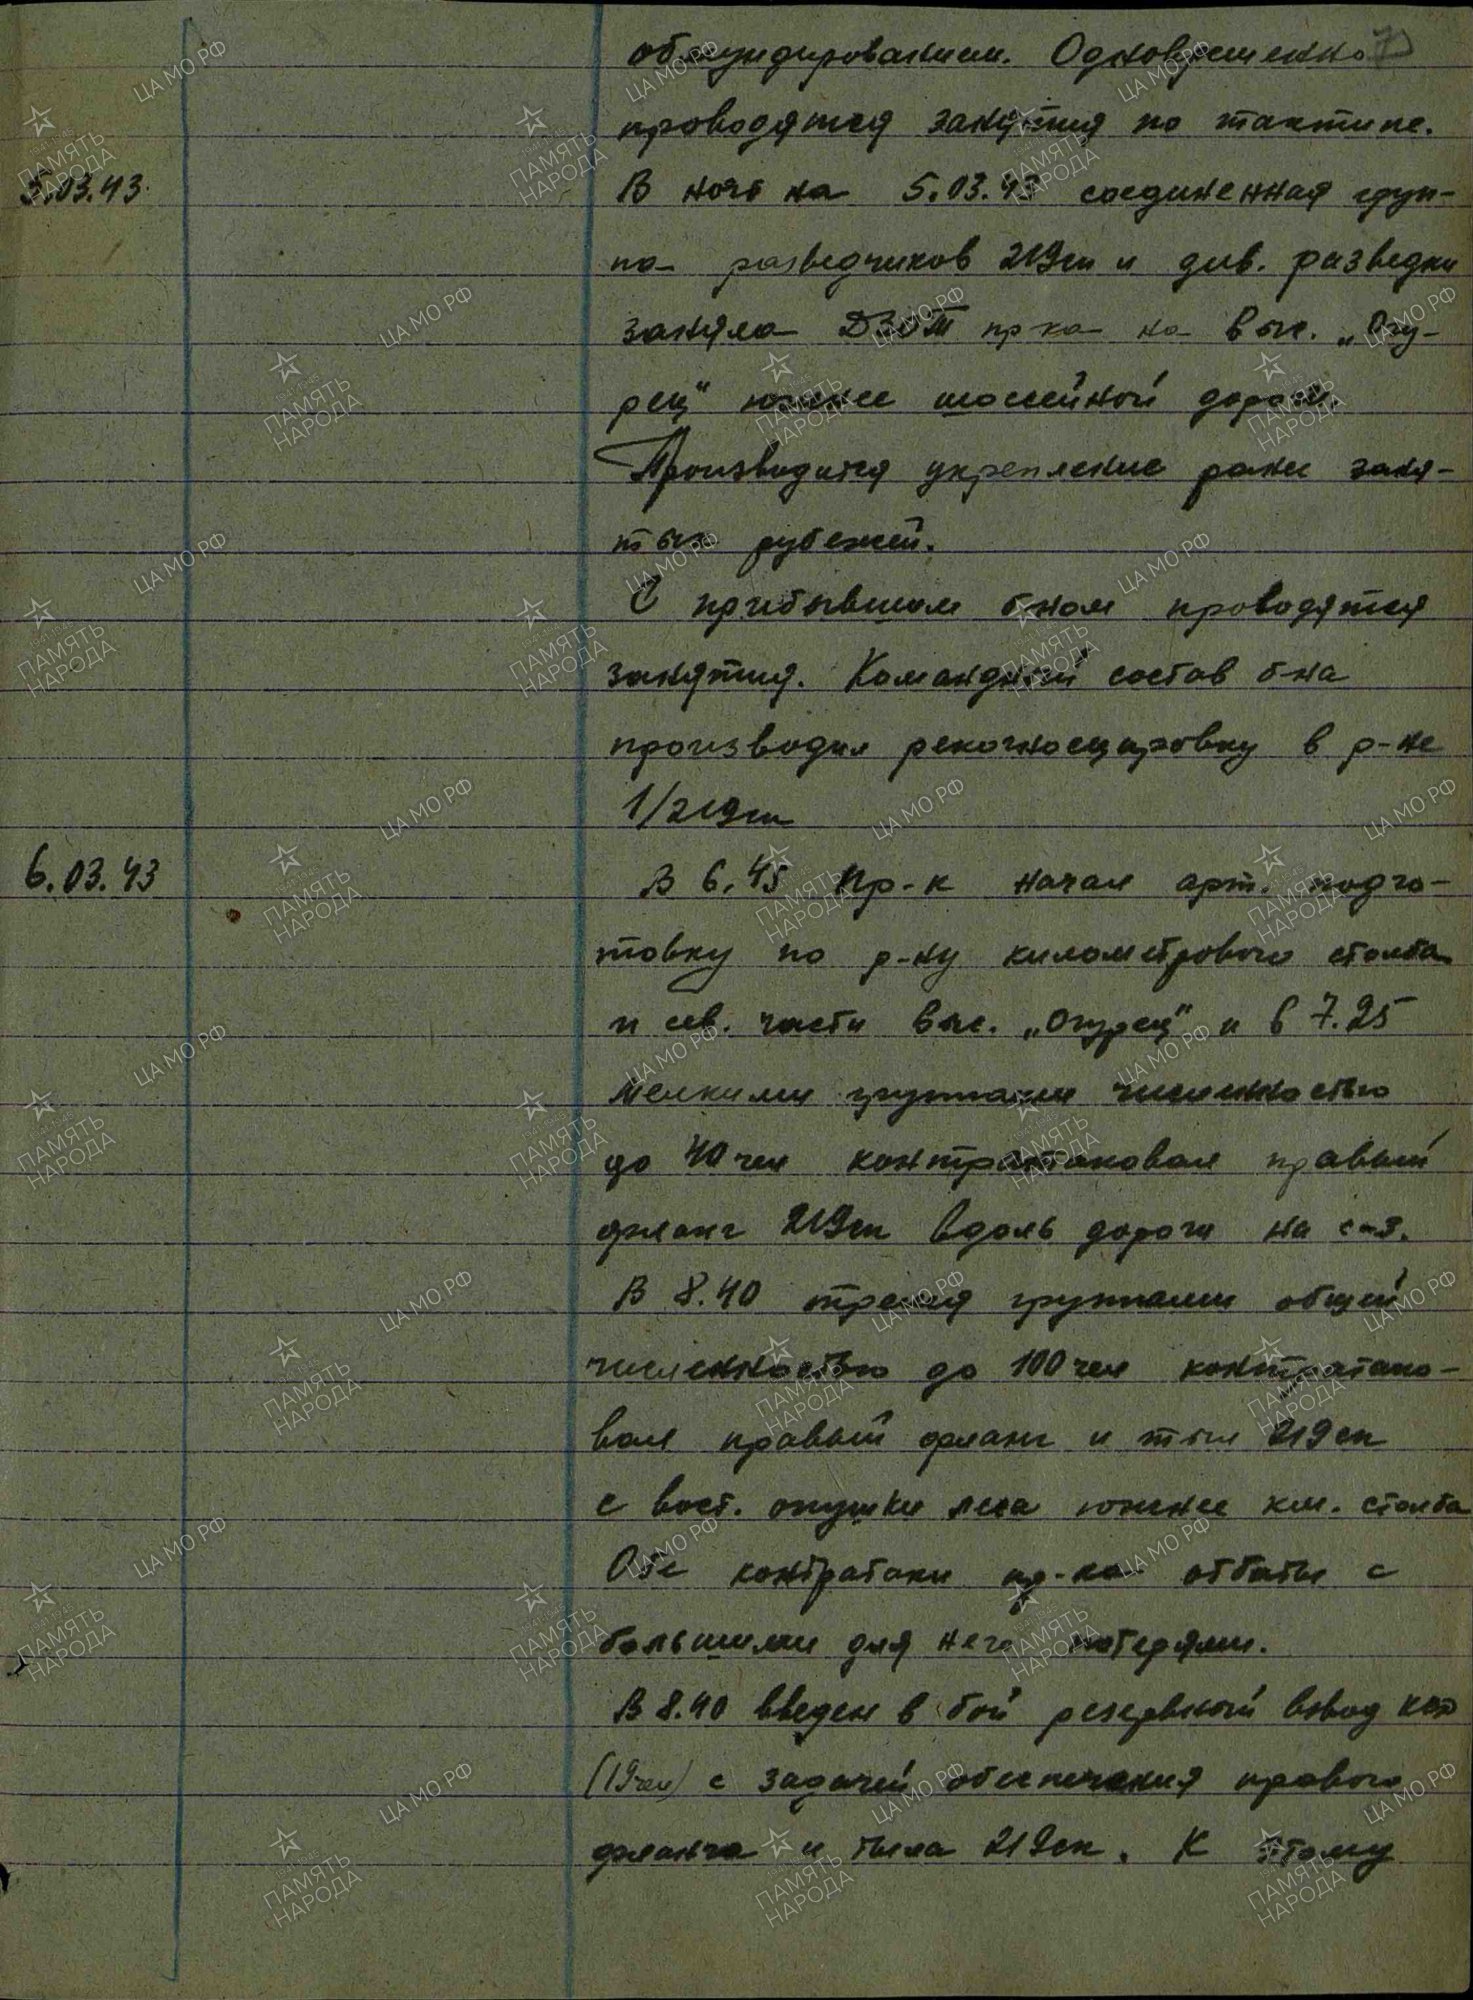 обмундированием. Одновременно
проводятся занятия по тактике.
5.03.43. В ночь на 5.03.43 соединенная груп-
па разведчиков 219сп и див. разведки
заняла ДЗОТ пр-ка на выс. „Огу-
рец" южнее шоссейной дороги.
Производится укрепление ранее заня-
тых рубежей.
С прибывшим б-ном проводятся
занятия. Командный состав б-на
производил рекогносцировку в р-не
1/219сп
6.03.43 В 6.45 пр-к начал арт. подго-
товку по р-ну километрового столба
и сев. части выс. „Огурец" и в 7.25
мелкими группами численностью
до 40 чел контратаковал правый
фланг 219сп вдоль дороги на с-з.
В 8.40 тремя группами общей
численностью до 100 чел контратако-
вал правый фланг и тыл 219сп
с вост. опушки леса южнее км. столба
Обе контратаки пр-ка отбиты с
большими для него потерями.
В 8.40 введен в бой резервный взвод
(19чел) с задачей обеспечения правого
фланга и тыла 219сп. К этому